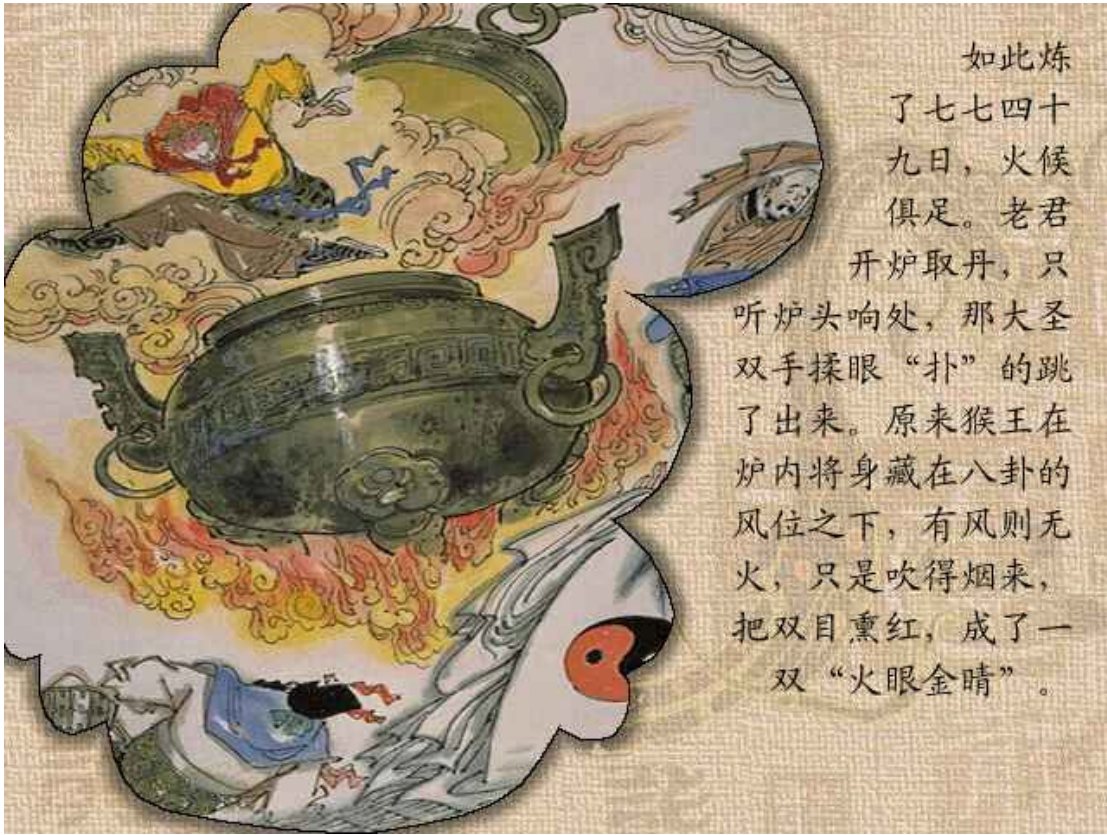 如此炼
了七七四十
九日，火候
俱足。老君
开炉取丹，只
听炉头响处，那大圣
双手揉眼“扑”的跳
了出来。原来猴王在
炉内将身藏在八卦的
风位之下，有风则无
火，只是吹得烟来，
把双目熏红，成了一
双“火眼金晴”。